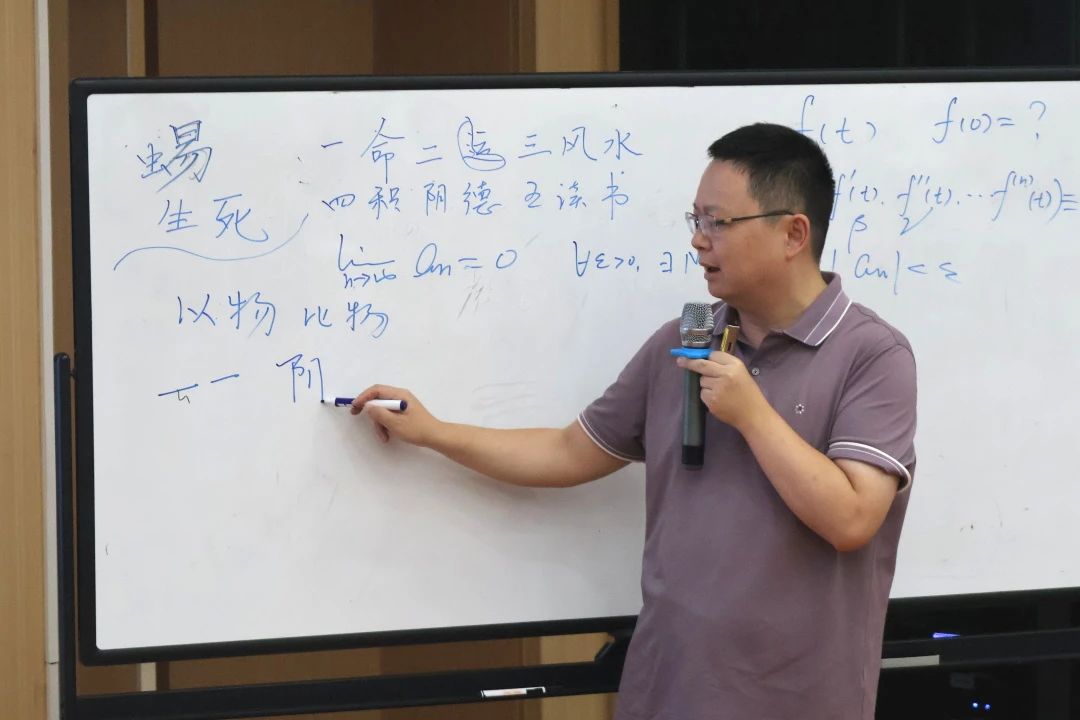 蜴
生死
一命二运三风水
四积阴德五读书
lim n→∞ an = 0 ∀ε>0, ∃N
|an| < ε
以物比物
一 阴
f(t) f(0)=?
f'(t), f''(t), ... f^(n)(t) =
β